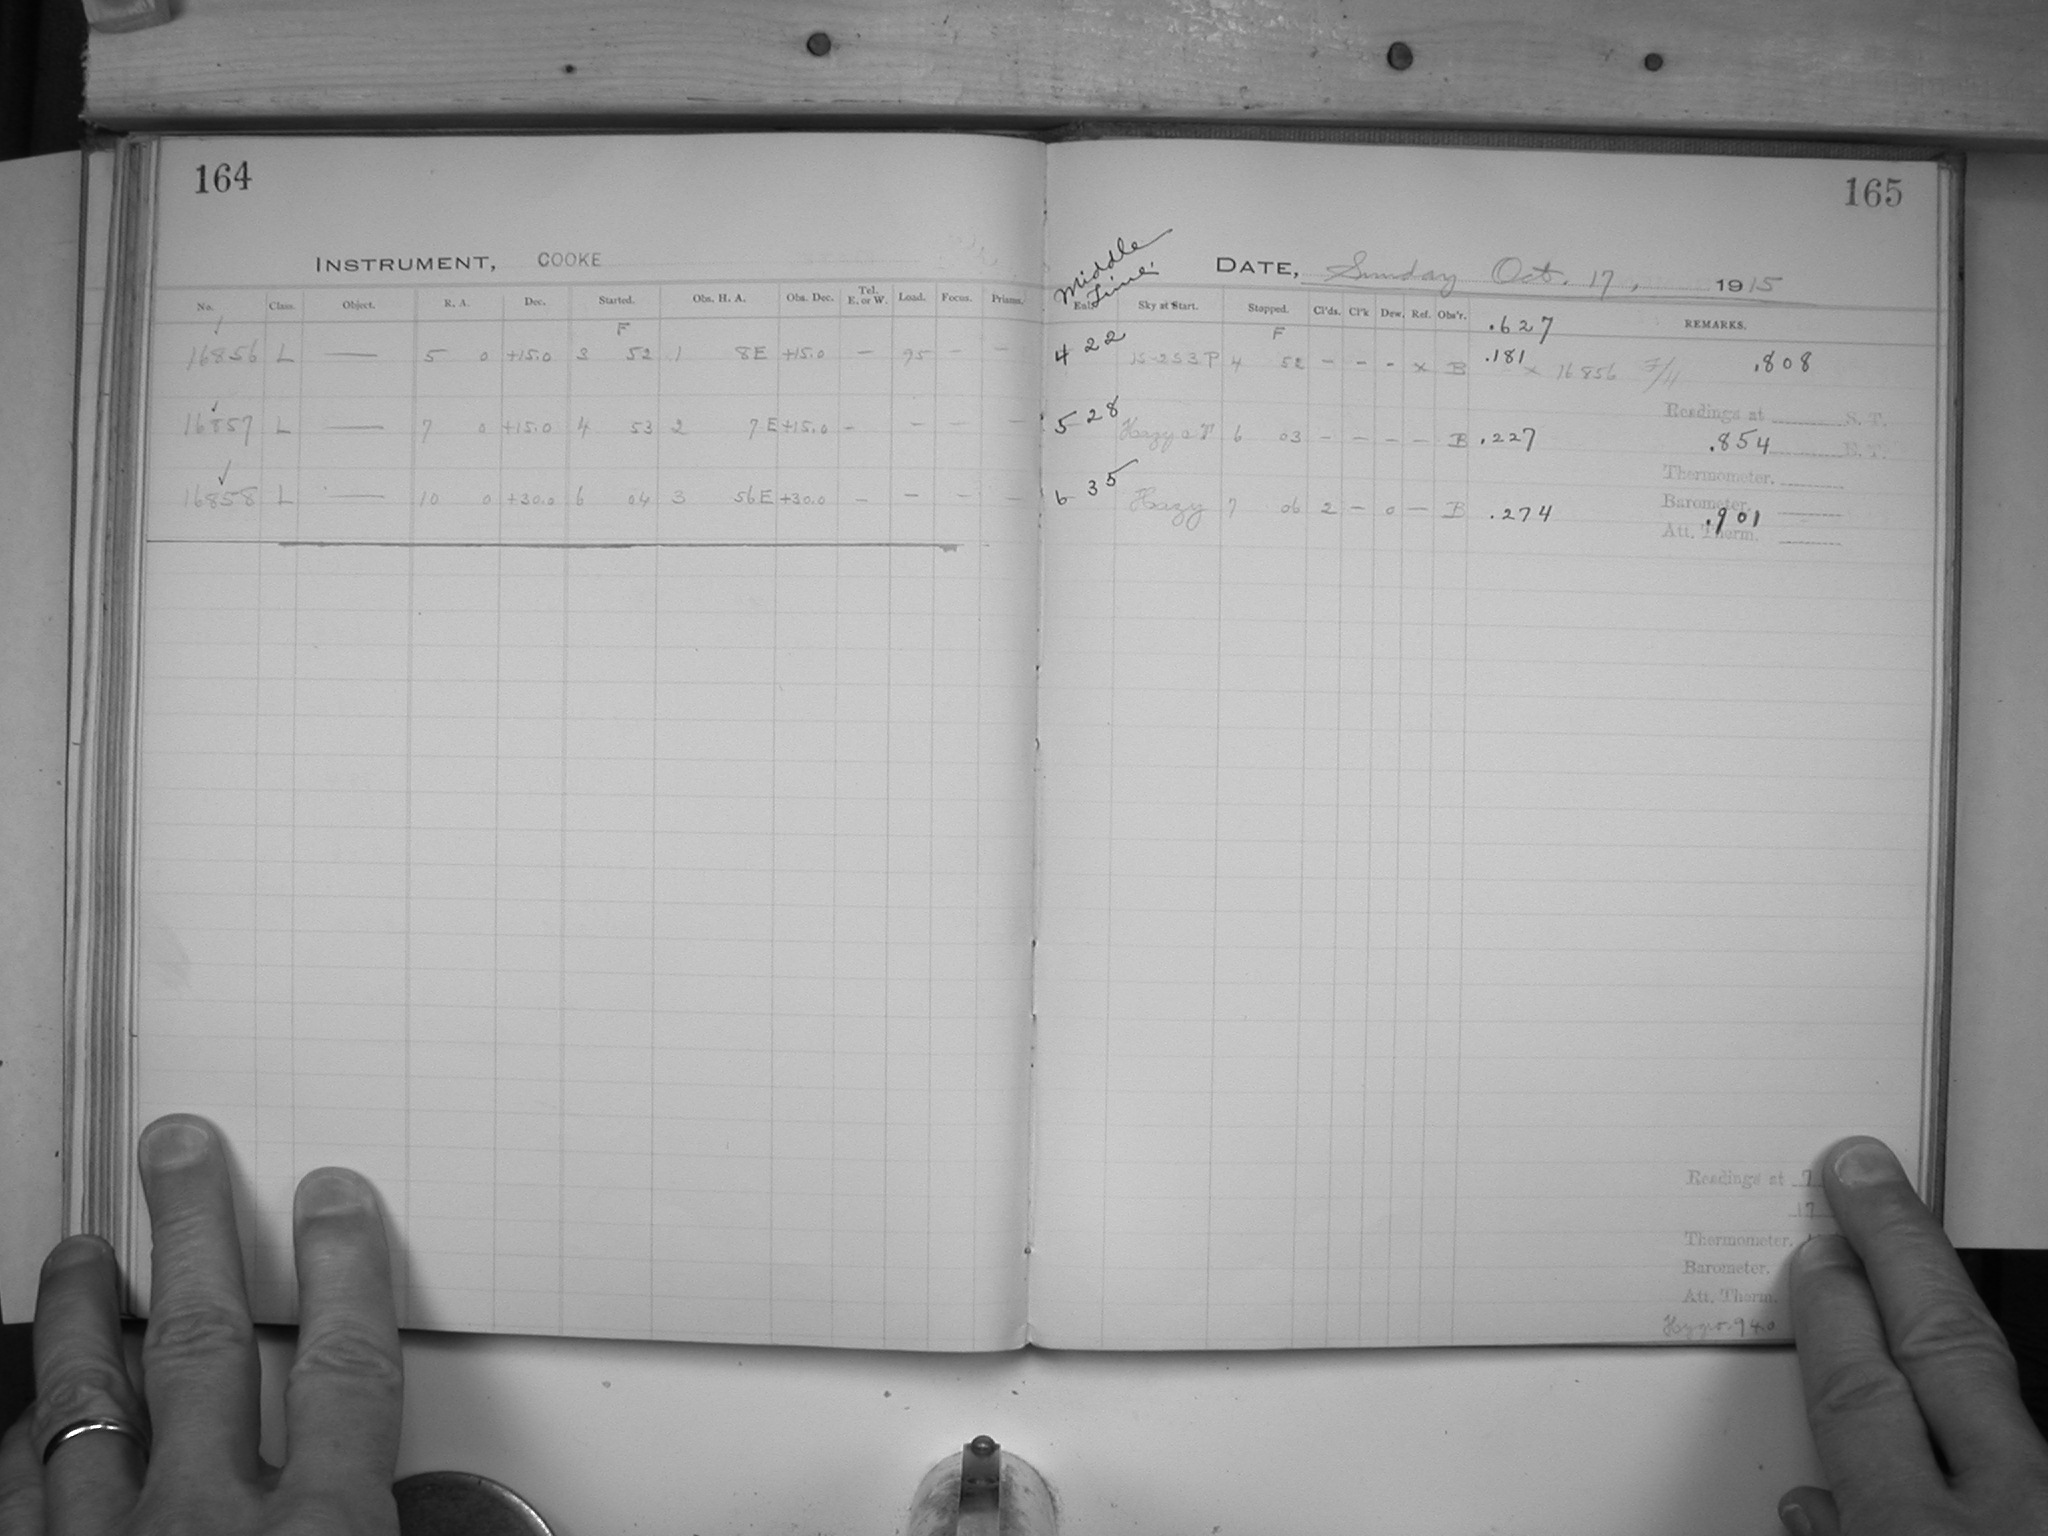 164
INSTRUMENT, COOKE
No. Class. Object. R. A. Dec. Started. Obs. H. A. Obs. Dec. Tel. E. or W. Load. Focus. Prisms.
F
16856 L — 5 0 +15.0 3 52 1 8E +15.0 — 95 — —
16857 L — 7 0 +15.0 4 53 2 7E +15.0 — — — —
16858 L — 10 0 +30.0 6 04 3 56E +30.0 — — — —
165
Middle Time
DATE, Sunday Oct. 17, 1915
Sky at Start. Stopped. Cl'ds. Cl'k Dew. Ref. Obs'r. REMARKS.
F .627
4 22 4 52 — — — x B .181 x 16856 .808
Readings at S. T.
5 28 6 03 — — — — B .227 .854 E. T.
Thermometer.
6 35 Hazy 7 06 2 — 0 — B .274 .901
Barometer.
Att. Therm.
Readings at 7
17
Thermometer.
Barometer.
Att. Therm.
Hygro. 94.0